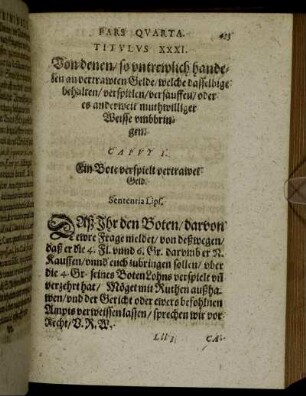 PARS QVARTA. 423
TITVLVS XXXI.
Von denen / so vntrewlich hande-
len an vertrawten Gelde / welche dasselbige
behalten / verspielen / versauffen / oder
es anderweit muthwilliger
Weisse vmbbrin-
gen.
CAPVT I.
Ein Bote verspielt vertrawet
Geld.
Sententia Lips.
DAß Ihr den Boten / davon
ewre Frage meldet / von deßwegen /
daß er die 4. Fl. vnnd 6. Gr. darumb er N.
Kauffen / vnnd euch zubringen sollen / vber
die 4. Gr. seines Boten Lohns verspielt vñ
verzehrt hat / Möget mit Ruthen außha-
wen / vnd der Gericht oder ewers befohlnen
Ampts verweissen lassen / sprechen wir vor
Recht / V. R. W.
Lll 3 CA-